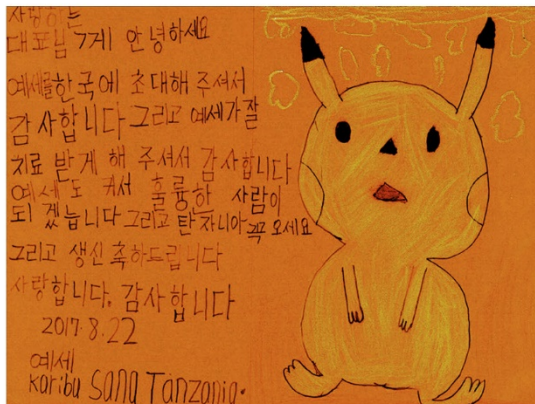 사랑하는
대표님 7께 안녕하세요
예세를한국에 초대해 주셔서
감사합니다 그리고 예세가 잘
치료 받게 해 주셔서 감사합니다
예세도 커서 훌륭한 사람이
되겠늡니다 그리고 탄자니아 꼭 오세요
그리고 생신 축하드립니다
사랑합니다, 감사합니다
2017.8.22
예세
Karibu Sana Tanzania.